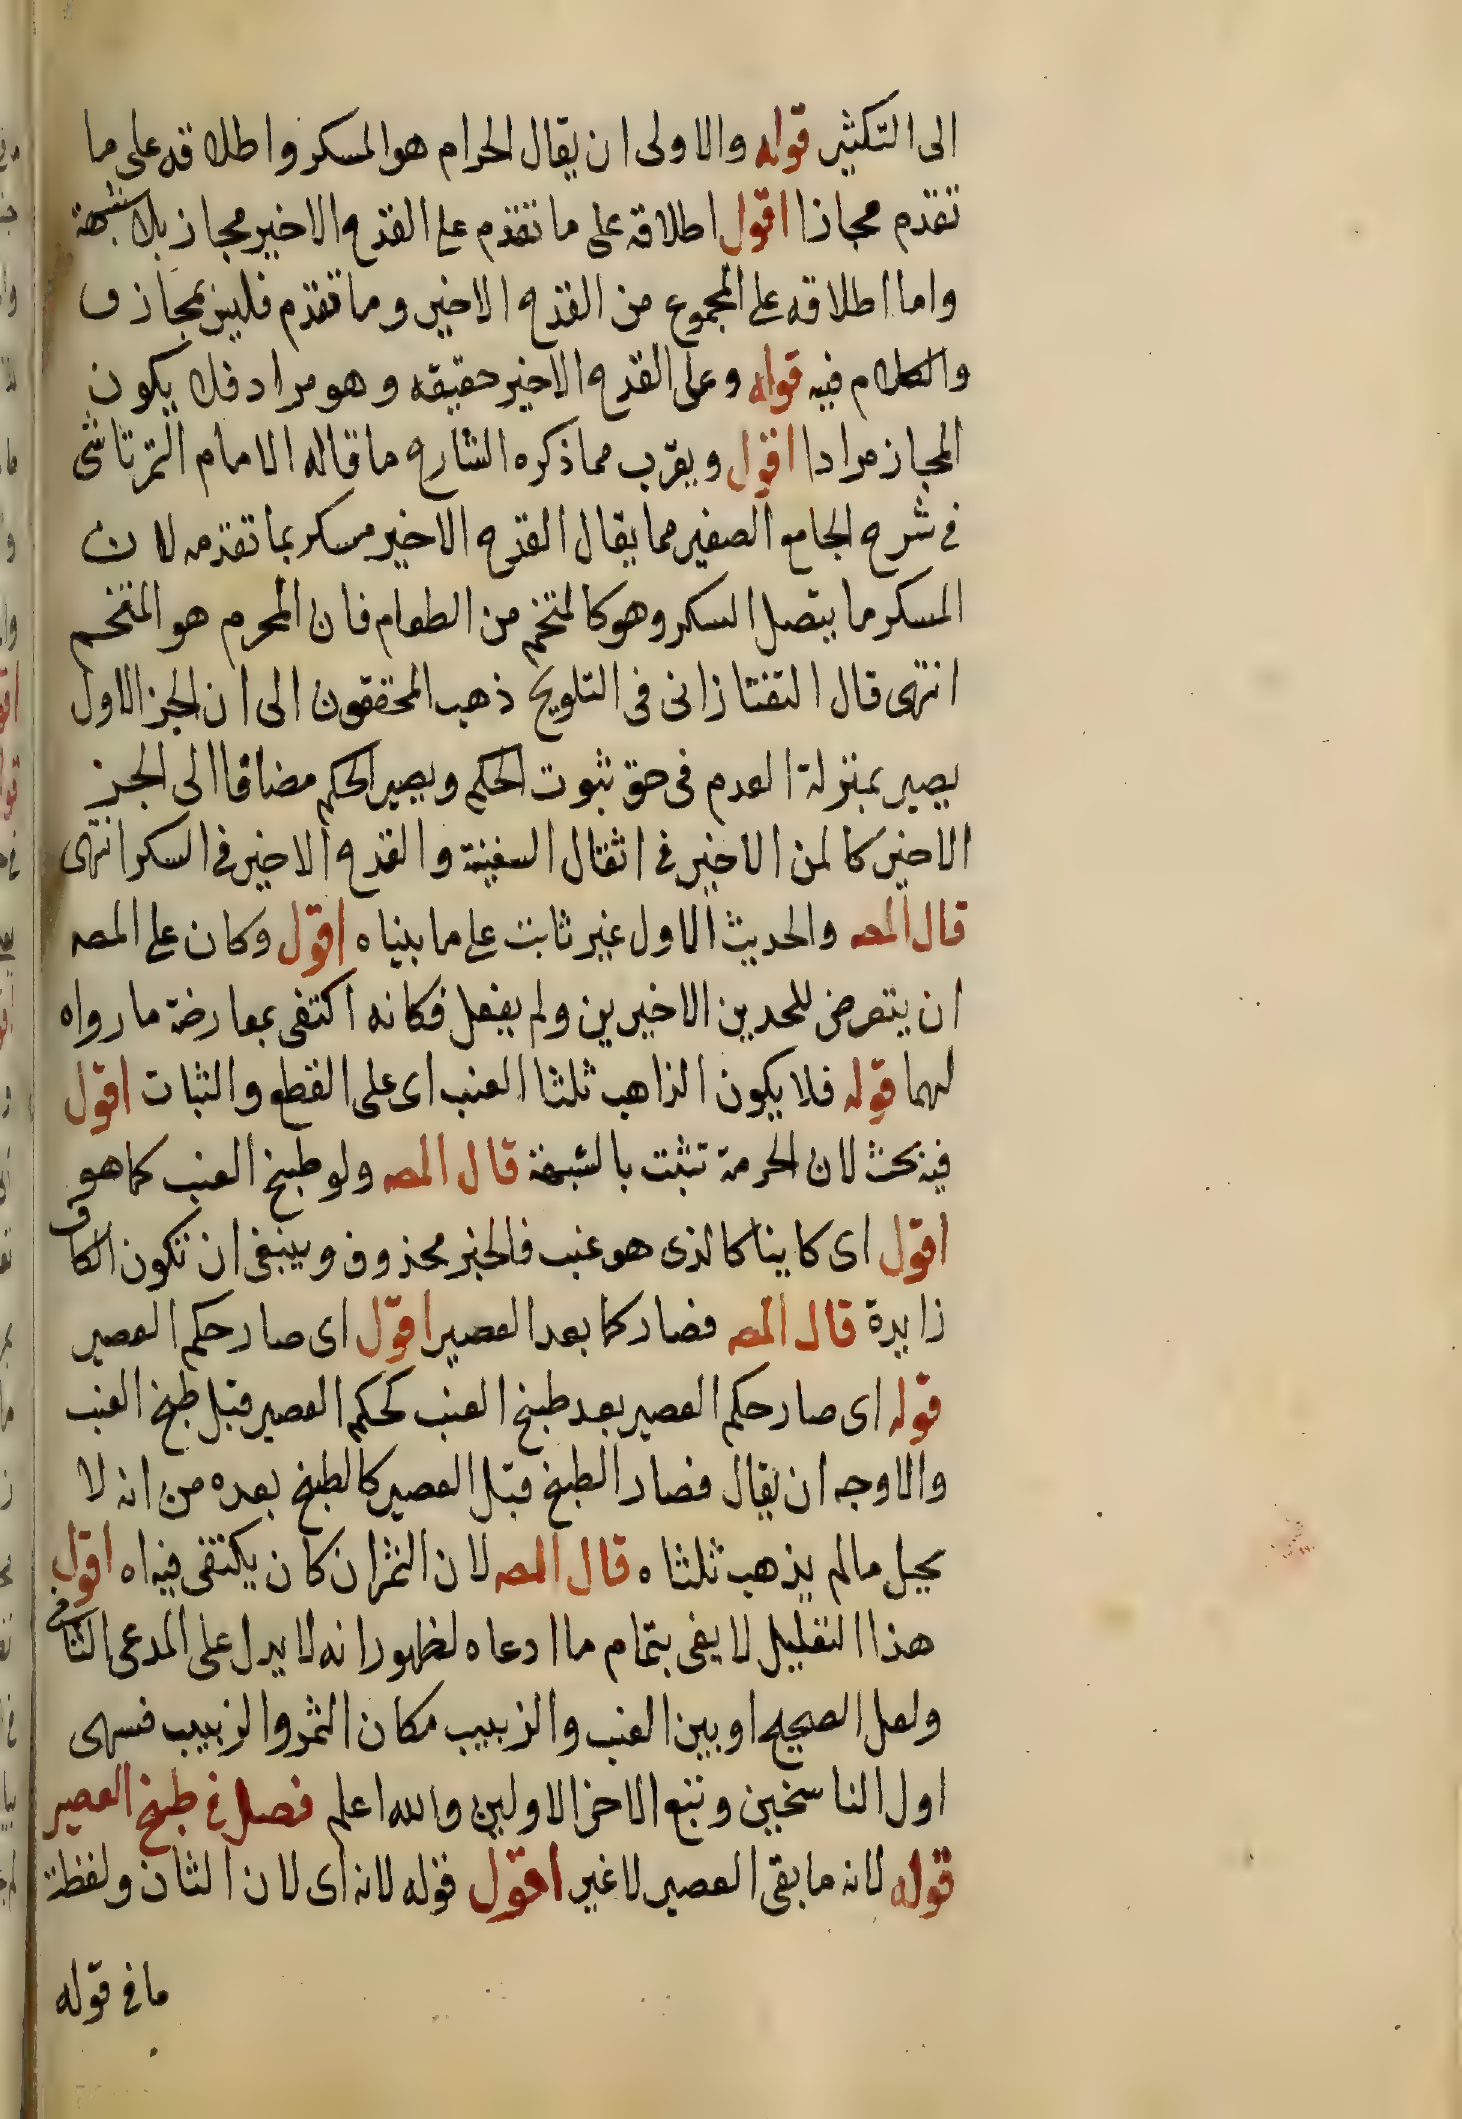 الى التكثير قوله والاولى ان يقال الحرام هو المسكر واطلاقه على ما
تقدم مجازا اقول اطلاقه على ما تقدم على القدح الاخير مجاز بلا شبهة
واما اطلاقه على المجموع من القدح الاخير وما تقدم فليس بمجاز
والكلام فيه قوله وعلى القدح الاخير حقيقه وهو مراد فلا يكون
المجاز مرادا اقول ويقرب مما ذكره الشارح ما قاله الامام التمرتاشى
فى شرح الجامع الصغير مما يقال القدح الاخير مسكر بما تقدمه لان
المسكر ما يتصل السكر وهو كالمتخم من الطعام فان المحرم هو المتخم
انتهى قال التفتازانى فى التلويح ذهب المحققون الى ان الجز الاول
يصير بمنزلة العدم فى حق ثبوت الحكم ويصير الحكم مضافا الى الجز
الاخير كالمن الاخير فى اثقال السفينة والقدح الاخير فى السكر انتهى
قال المصه والحديث الاول غير ثابت على ما بيناه اقول وكان على المصه
ان يتعرض للحديثين الاخيرين ولم يفعل فكانه اكتفى بمعارضة ما رواه
لهما قوله فلا يكون الذاهب ثلثا العنب اى على القطع والثبات اقول
فيه بحث لان الحرمة تثبت بالشبهة قال المصه ولو طبخ العنب كما هو
اقول اى كاينا كالذى هو عنب فالخبر محذوف وينبغى ان تكون الكاف
زايدة قال المصه فصار كما بعد العصير اقول اى صار حكم العصير
قوله اى صار حكم العصير بعد طبخ العنب كحكم العصير قبل طبخ العنب
والاوجه ان يقال فصار الطبخ قبل العصير كالطبخ بعده من انه لا
يحل مالم يذهب ثلثاه قال المصه لان التمر ان كان يكتفى فيه اه اقول
هذا التعليل لا يفى بتمام ما ادعاه لظهور انه لا يدل على المدعى الثانى
ولعل الصحيح او بين العنب والزبيب مكان التمر والزبيب فسهى
اول الناسخين وتبع الاخر الاولين والله اعلم فصل فى طبخ العصير
قوله لانه ما بقى العصير لا غير اقول قوله لانه اى لان الشان ولفظة
ما فى قوله